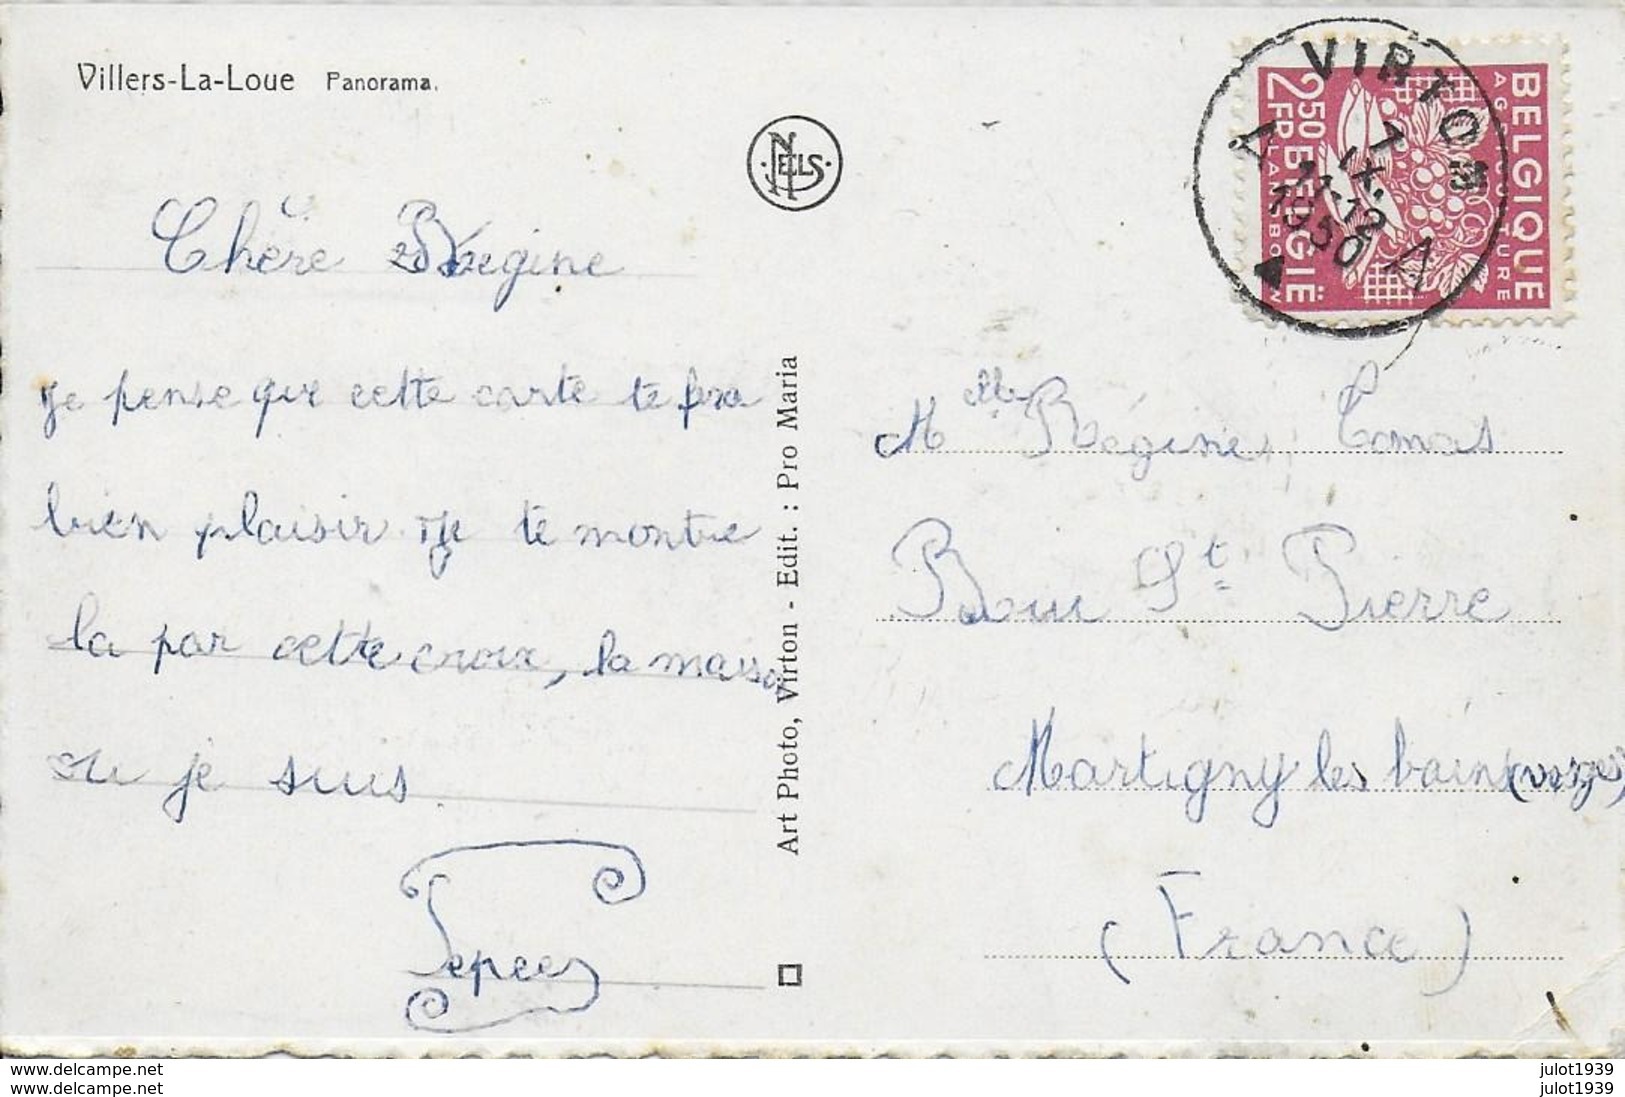 Villers-La-Loue Panorama.
NELS
Chère Régine
je pense que cette carte te fera
bien plaisir je te montre
la par cette croix, la maison
ou je suis
Art Photo, Virton - Edit. : Pro Maria
VIRTON
7
IX
11-12
1950
A A
BELGIQUE
AGRICULTURE
2 50 BELGIË
2 FR LANDBOUW
Melle Régine Tomas
St Pierre
Martigny les bains (vosges)
(France)
julot1939
julot1939
julot1939
julot1939